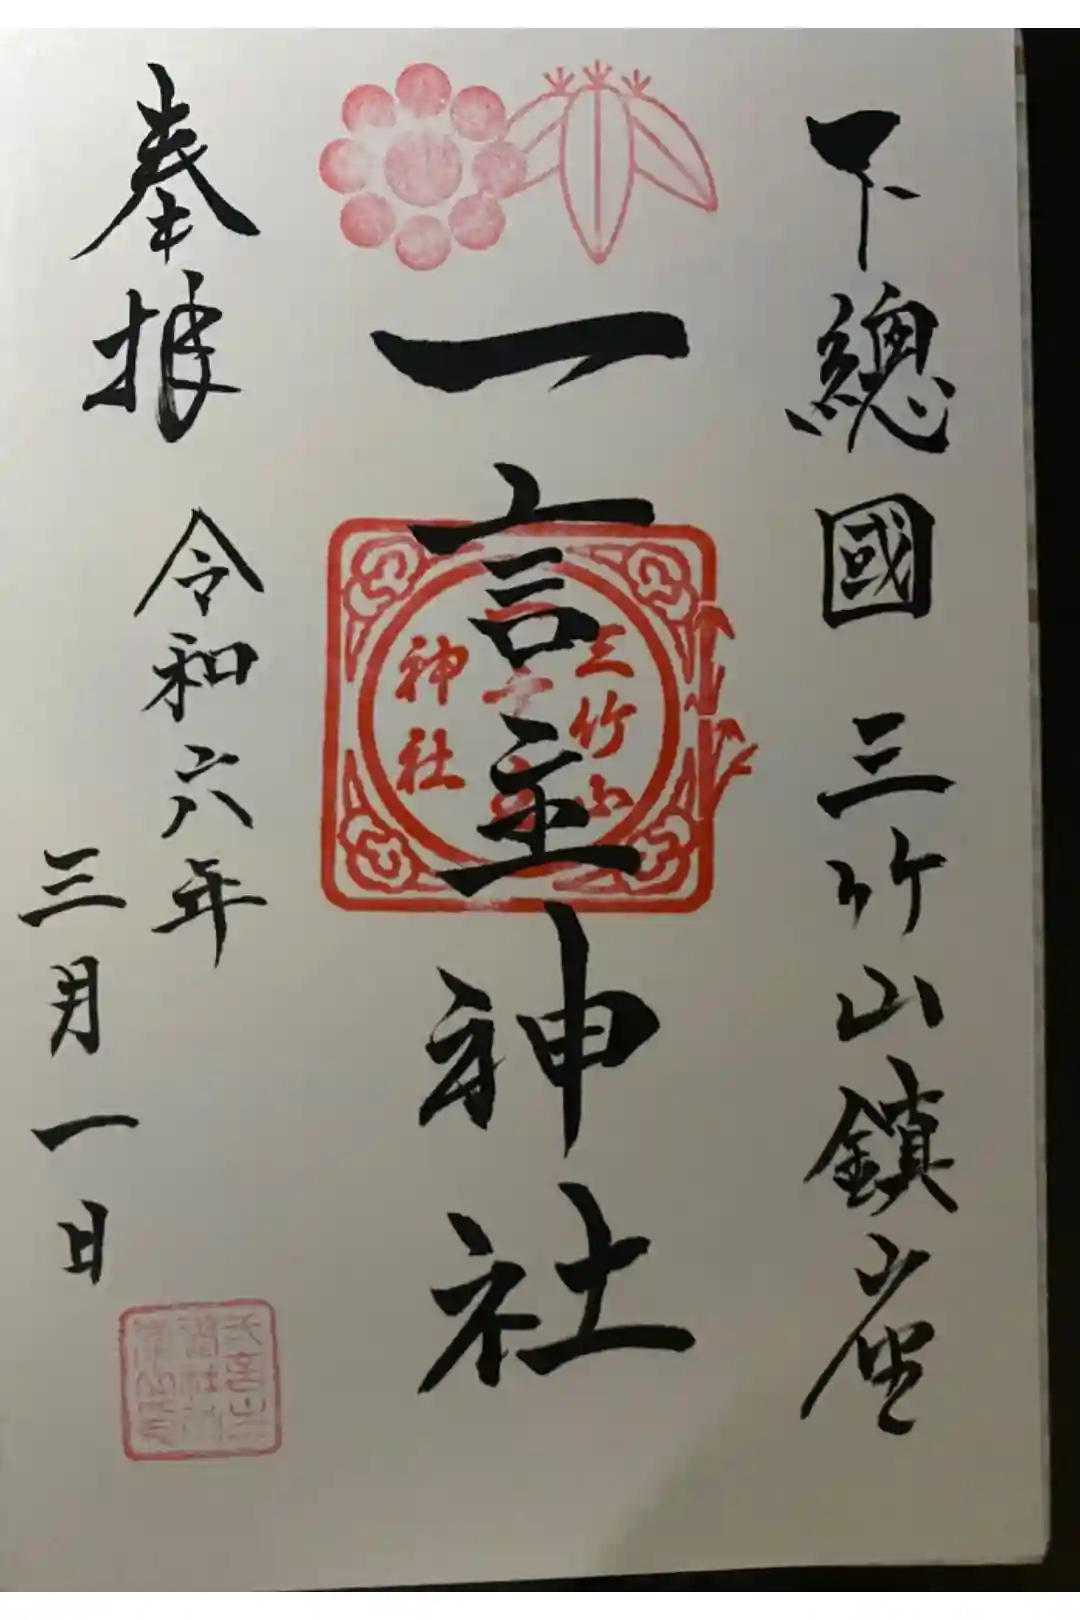 下總國三竹山鎮座
一言主神社
三竹山
一言主
神社
奉拝
令和六年
三月一日